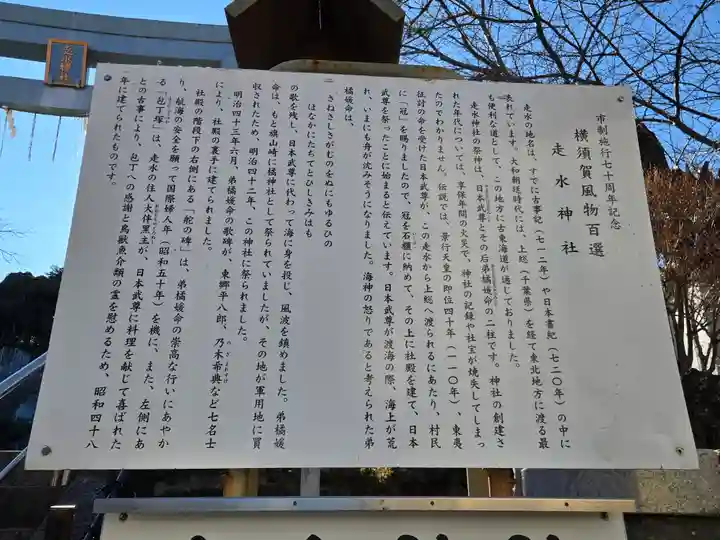 走水神社
市制施行七十周年記念
横須賀風物百選
走水神社
走水の地名は、すでに古事記(七一二年)や日本書紀(七二〇年)の中に
表れています。大和朝廷時代には、上総(千葉県)を経て東北地方に渡る最
も便利な道として、この地方に古東海道が通じておりました。
走水神社の祭神は、日本武尊とその后弟橘媛命の二柱です。神社の創建さ
れた年代については、享保年間の火災で、神社の記録や社宝が焼失してしまっ
たのでわかりません。伝説では、景行天皇の即位四十年(一一〇年)、東夷
征討の命を受けた日本武尊が、この走水から上総へ渡られるにあたり、村民
に「冠」を賜りましたので、冠を石櫃に納めて、その上に社殿を建て、日本
武尊を祭ったことに始まると伝えています。日本武尊が渡海の際、海上が荒
れ、いまにも舟が沈みそうになりました。海神の怒りであると考えられた弟
橘媛命は、
さねさしさがむのをぬにもゆるひの
ほなかにたちてとひしきみはも
の歌を残し、日本武尊に代わって海に身を投じ、風波を鎮めました。弟橘媛
命は、もと旗山崎に橘神社として祭られていましたが、その地が軍用地に買
収されたため、明治四十二年、この神社に祭られました。
明治四十三年六月、弟橘媛命の歌碑が、東郷平八郎、乃木希典など七名士
のぎまれすけ
により、社殿の裏手に建てられました。
社殿の階段下の右側にある「舵の碑」は、弟橘媛命の崇高な行いにあやか
り、航海の安全を願って国際婦人年(昭和五十年)を機に、また、左側にあ
る「包丁塚」は、走水の住人大伴黒主が、日本武尊に料理を献じて喜ばれた
との古事により、包丁への感謝と鳥獣魚介類の霊を慰めるため、昭和四十八
年に建てられたものです。